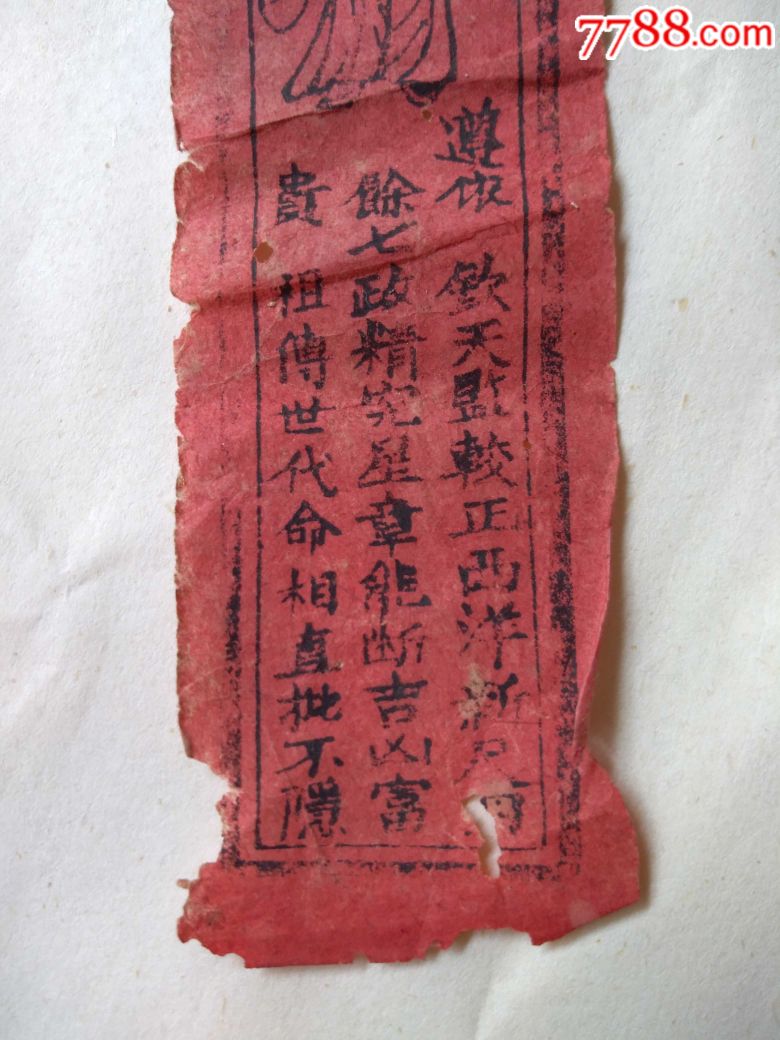 7788.com
遵依 欽天監較正西洋新
餘七政精究星章能斷吉凶富
貴 祖傳世代命相直批不隱